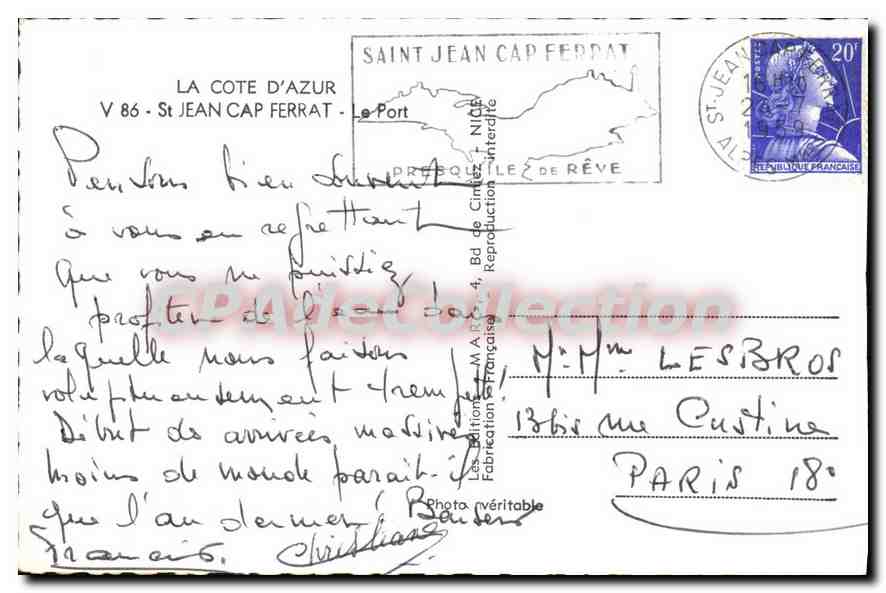 LA COTE D'AZUR
V 86 - St JEAN CAP FERRAT - Le Port
SAINT JEAN CAP FERRAT
PRESQU'ILE DE RÊVE
ST-JEAN-CAP-FERRAT
1959
ALPES
POSTES
20F
REPUBLIQUE FRANÇAISE
Pensons bien souvent
à vous en regrettant
que vous ne puissiez
profiter de l'eau dans
laquelle nous faisons
voluptueusement trempette!
Début des arrivées massives
moins de monde paraît-il
que l'an dernier! Baisers
Francis. Christiane
Les Editions MAR, 4, Bd de Cimiez - NICE
Fabrication Française Reproduction interdite
Photo véritable
Mr Mme LESBROS
13bis rue Custine
PARIS 18°
CPAdeCollection